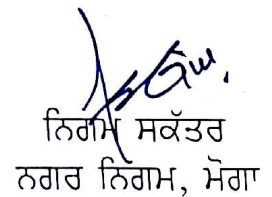 ਨਿਗਮ ਸਕੱਤਰ
ਨਗਰ ਨਿਗਮ, ਮੋਗਾ